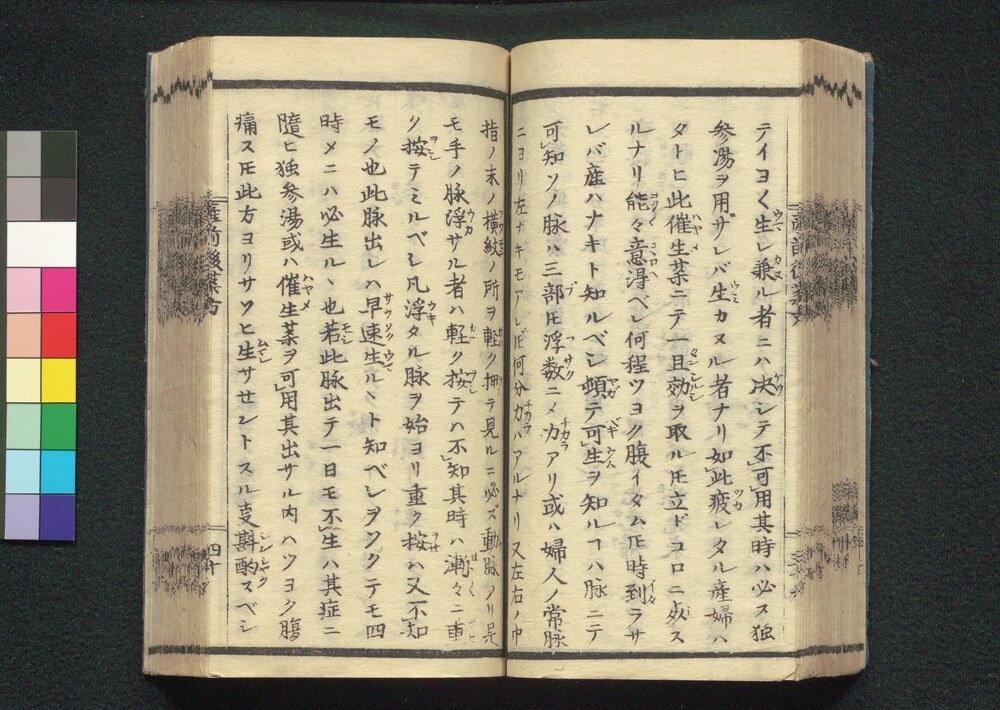 テイヨく生レ兼ル者ニハ决シテ不可用其時ハ必ス独
参湯ヲ用ザレバ生カヌル者ナリ如此疲レタル産婦ハ
タトヒ此催生菜ニテ一旦効ヲ取ル𪜈立ドコロニ死ス
ルナリ能々意得ベシ何程ツヨク腹イタム𪜈時到ラサ
レバ産ハナキト知ルベシ頓テ可生ヲ知ルヿハ脉ニテ
可知ソノ脉ハ三部𪜈浮数ニメ力アリ或ハ婦人ノ常脉
ニヨリ左ナキモアレ𪜈何分力ハアルナリ又左右ノ中
指ノ末ノ横紋ノ所ヲ軽ク押テ見ルニ必ズ動脉アリ是
モ手ノ脉浮サル者ハ軽ク按テハ不知其時ハ漸々ニ重
ク按テミルベシ凡浮タル脉ヲ始ヨリ重ク按ハ又不知
モノ也此脉出レハ早速生ルヽト知ベシヲソクテモ四
時メニハ必生ルヽ也若此脉出テ一日モ不生ハ其症ニ
隨ヒ独参湯或ハ催生菜ヲ可用其出サル内ハツヨク腹
痛ス𪜈此方ヨリサソヒ生サセントスル叓斟酌スベシ
四十